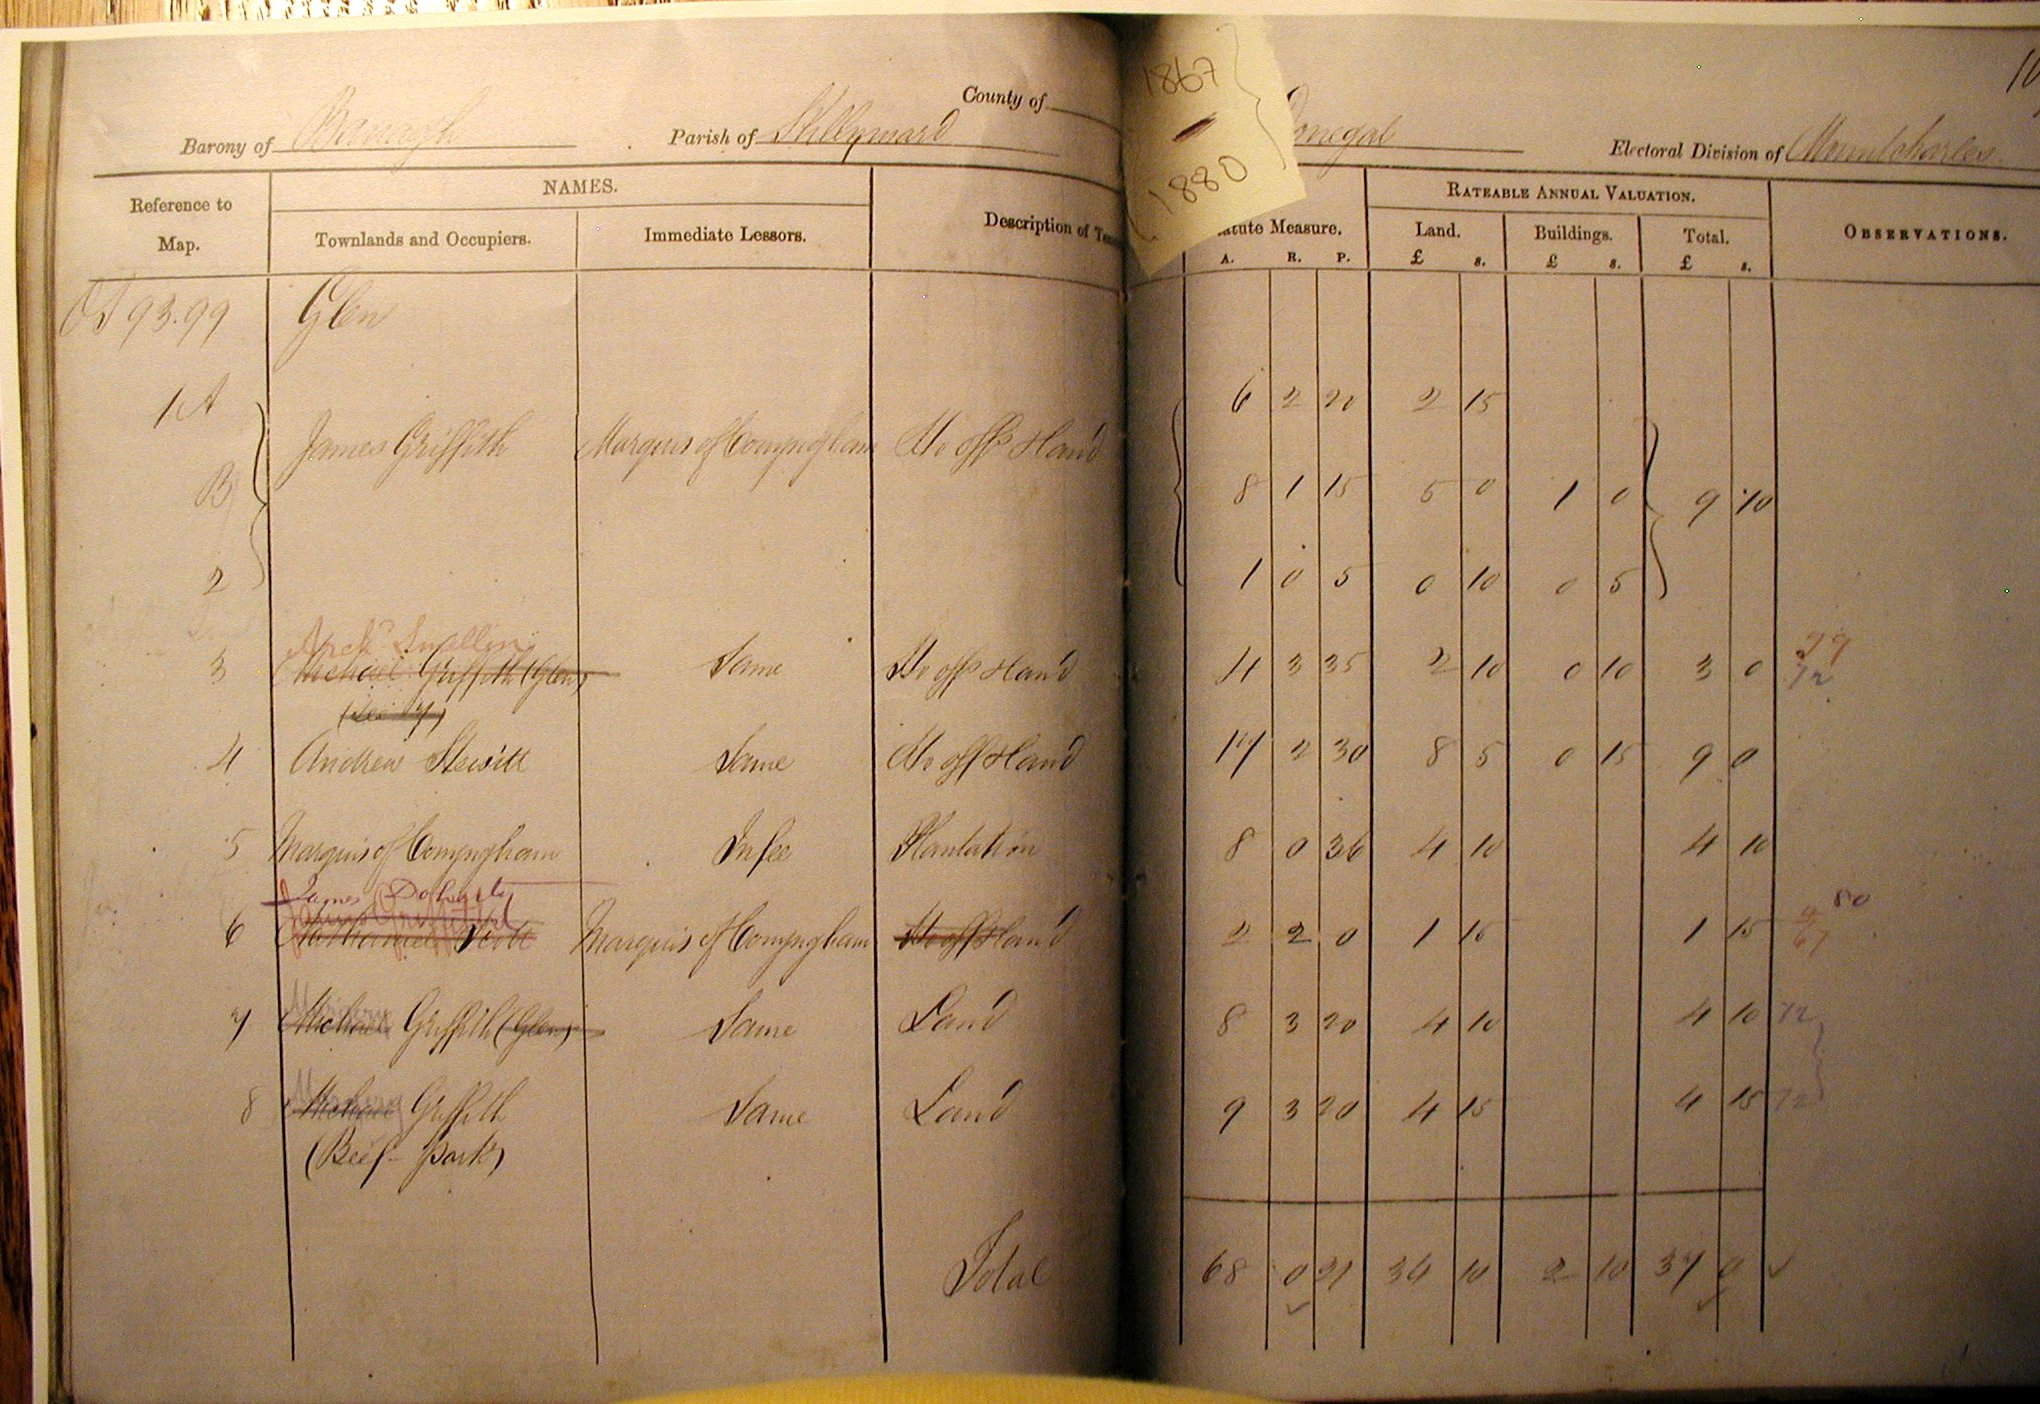 1867
1880
10
County of Donegal
Barony of Banagh Parish of Killymard Electoral Division of Mountcharles
NAMES. RATEABLE ANNUAL VALUATION.
Reference to Map. Townlands and Occupiers. Immediate Lessors. Description of Ten Statute Measure. Land. Buildings. Total. OBSERVATIONS.
A. R. P. £ s. £ s. £ s.
OS 93.99 Glen
1 A 6 2 20 2 15
James Griffith Marquis of Conyngham Ho offs & land
B 8 1 15 5 0 1 0 9 10
2 1 0 5 0 10 0 5
Archd
3 Michael Griffith (Glen) Same Ho offs & land 4 3 35 2 10 0 10 3 0 79 72
4 Andrew Stewitt Same Ho offs & land 17 2 30 8 5 0 15 9 0
5 Marquis of Conyngham In fee Plantation 8 0 36 4 10 4 10
James Doherty 80
James Griffith
6 Nathaniel Marquis of Conyngham Ho offs & land 2 2 0 1 15 1 15 67
7 Michael Griffith (Glen) Same Land 8 3 20 4 10 4 10 72
8 Michael Griffith Same Land 9 3 20 4 15 4 15 72
(Beef Park)
Total 68 0 21 34 10 2 10 37 0